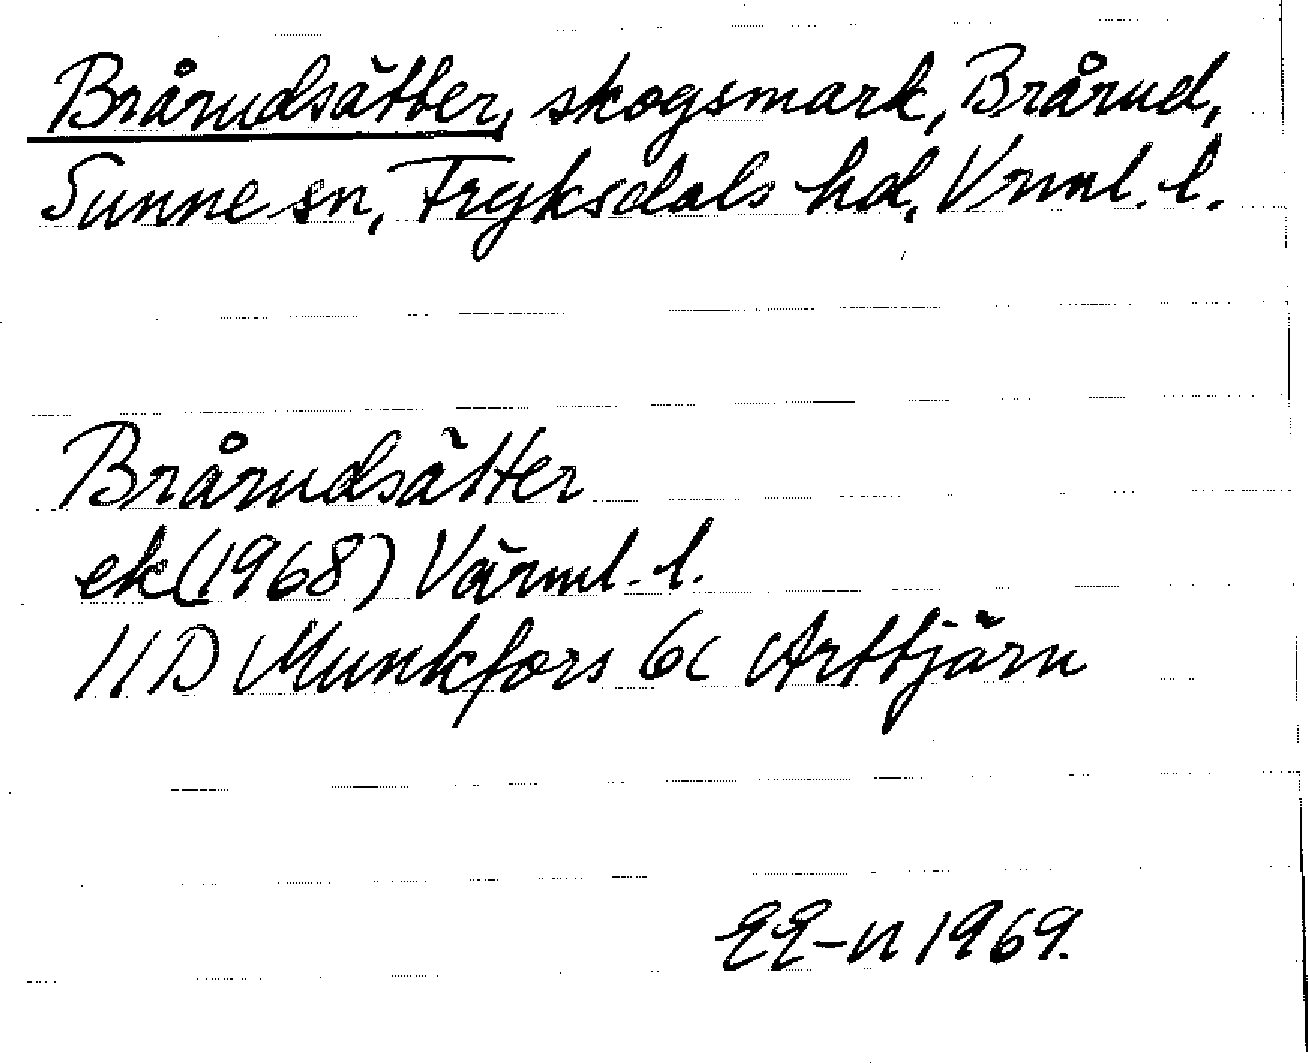 Brårudsätter, skogsmark, Brårud,
Sunne sn, Fryksdals hd, Vrml. l.
Brårudsätter
ek (1968) Värml. l.
11D Munkfors 6c Arttjärn
EE-n 1969.